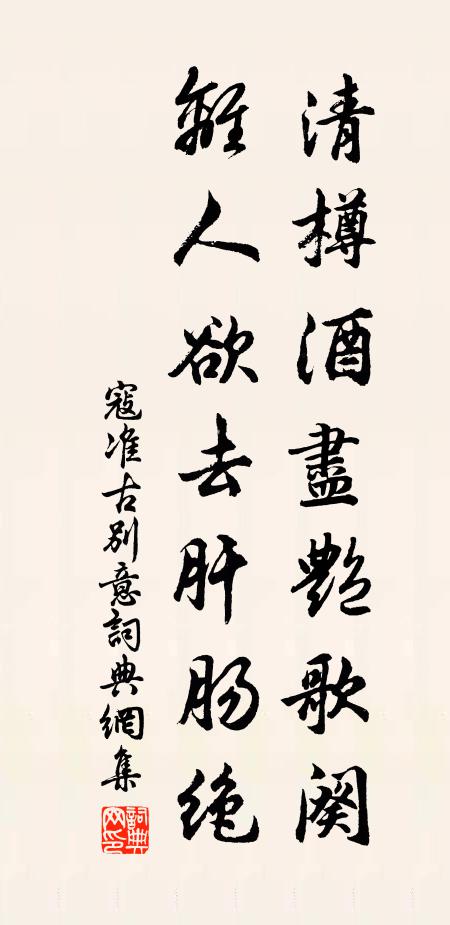 清樽酒盡艷歌闋
離人欲去肝腸绝
寇准古别意詞典網集
詞典網印